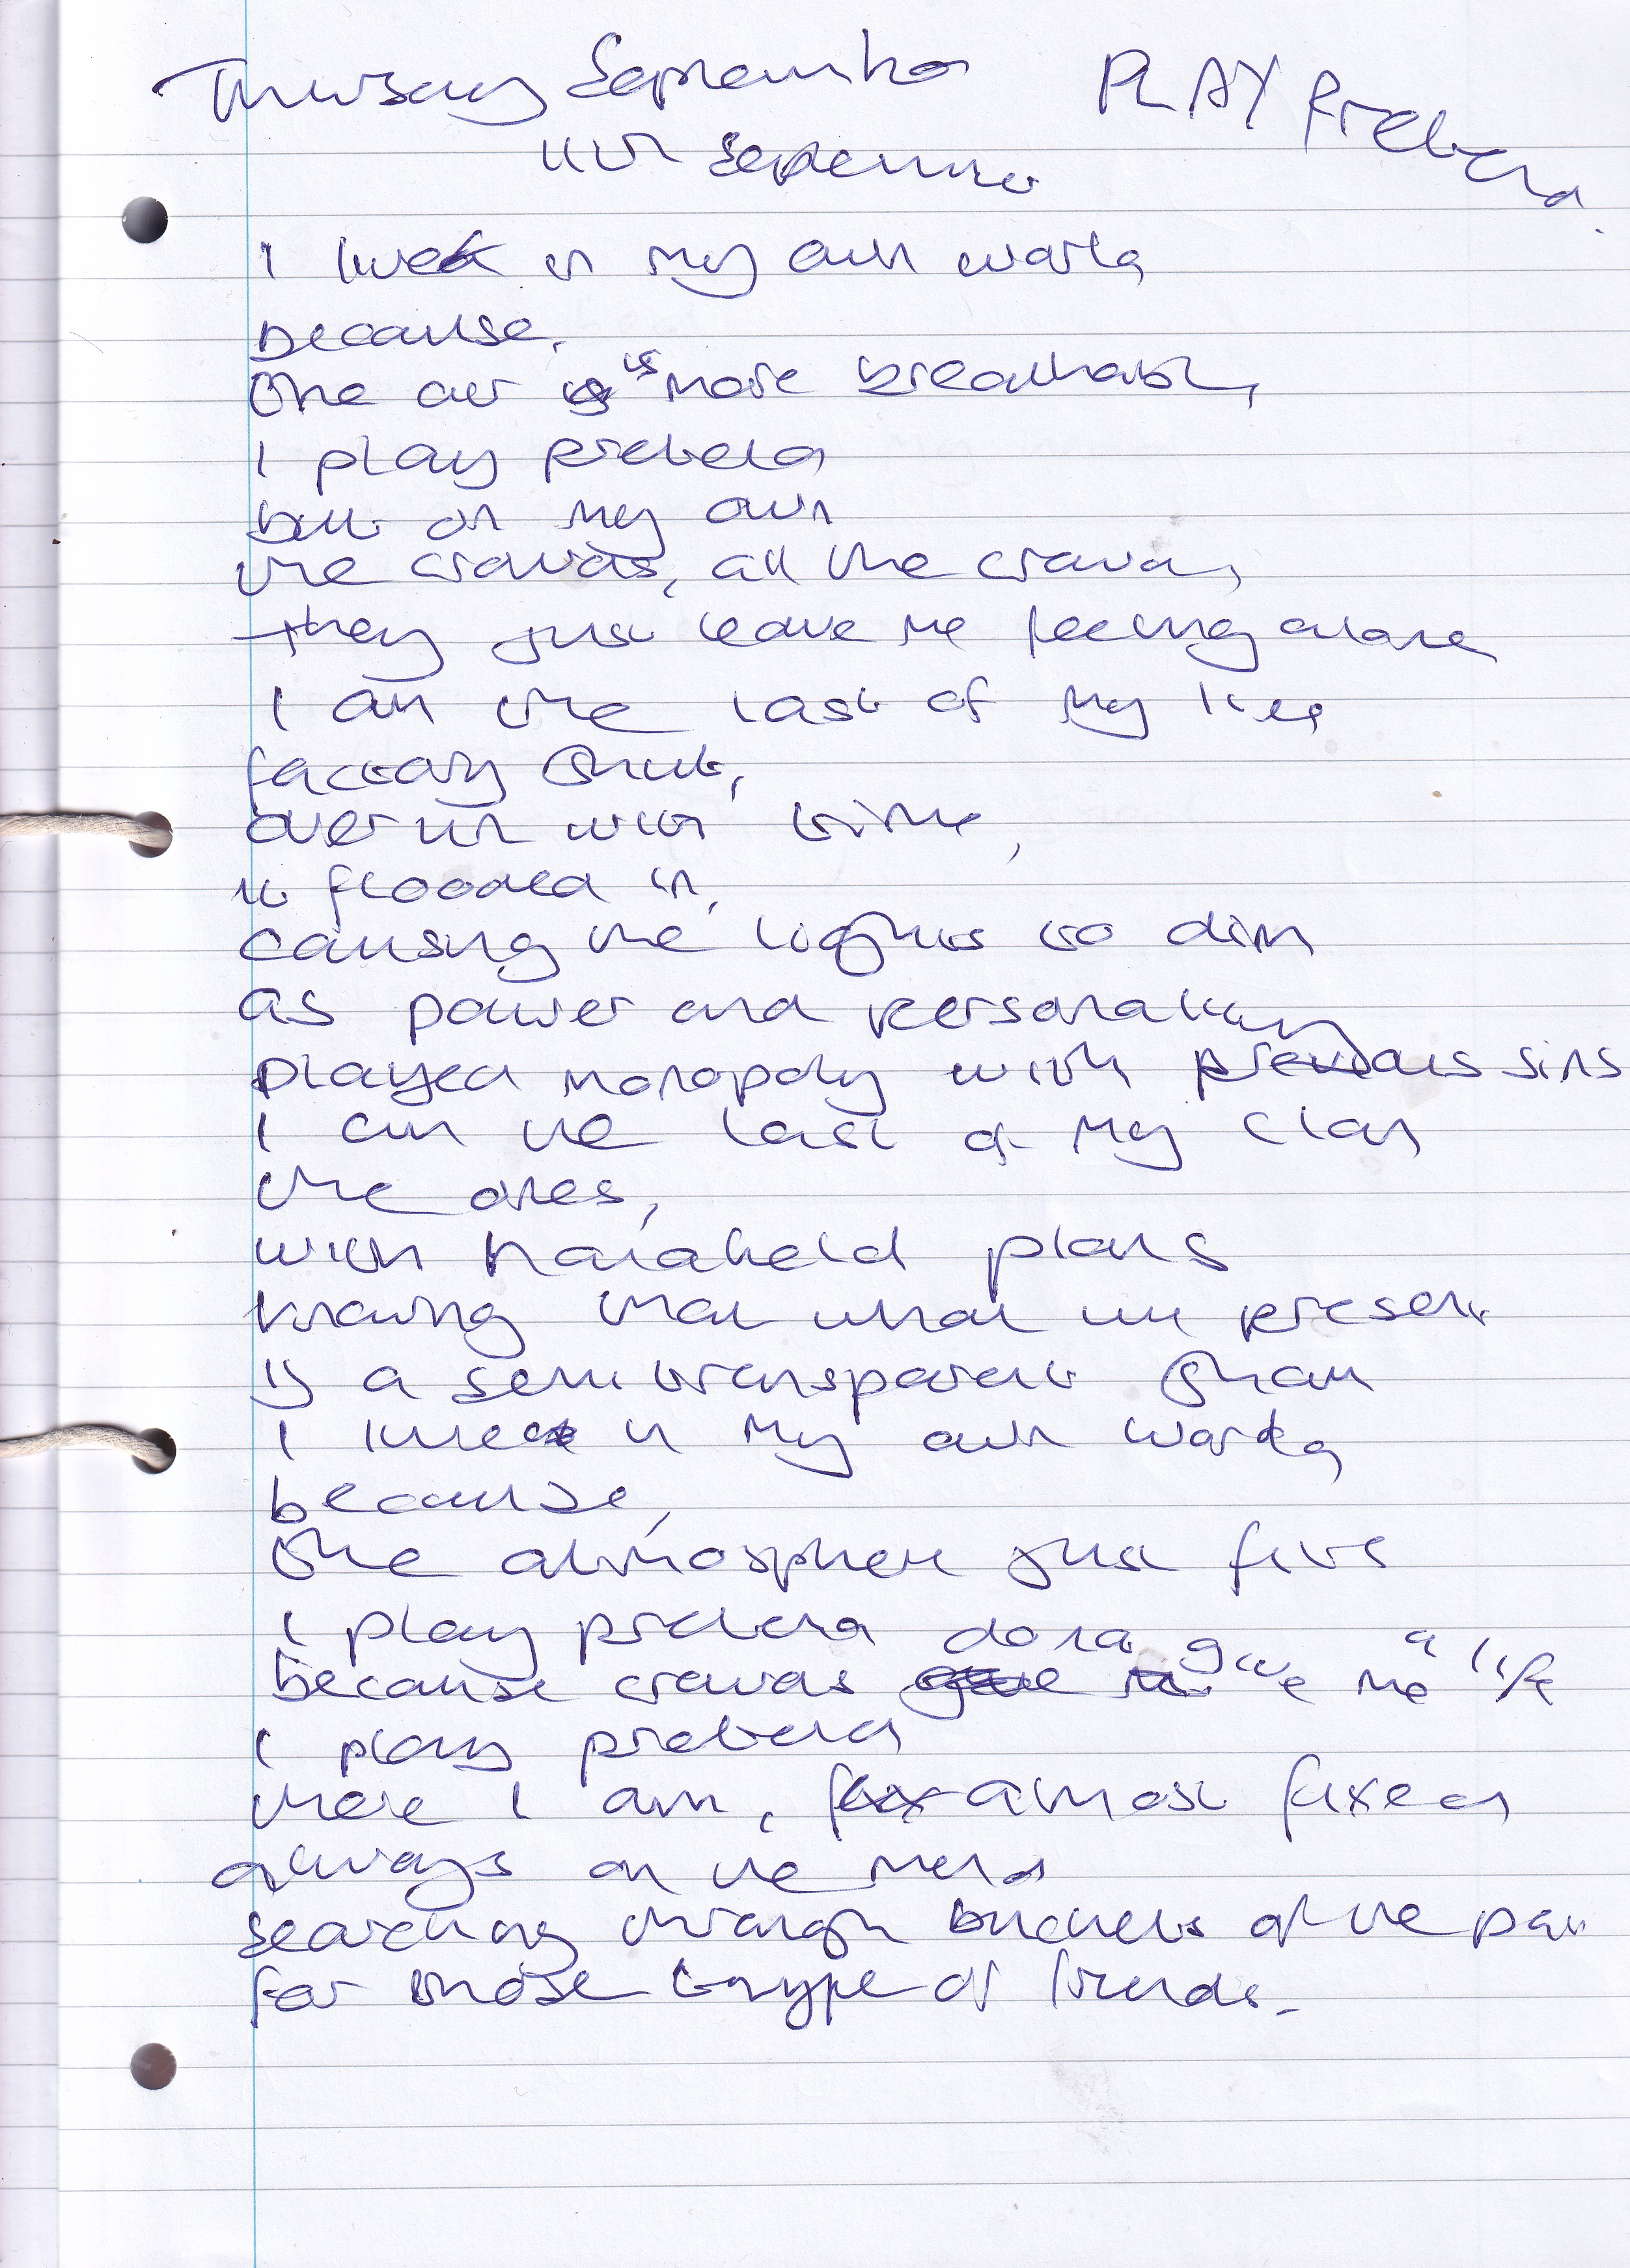 Thursday September PLAY Pretend.
11th September
I live in my own world
because,
the air is more breathable,
I play pretend
but on my own
the crowds, all the crowds,
they just leave me feeling alone
I am the last of my
factory shut,
overrun with time,
it flooded in,
causing the lights to dim
as power and personality
played monopoly with previous sins
I am the last of my clan
the ones,
with handheld plans
knowing that what we present
is a semi transparent sham
I live in my own world
because,
the atmosphere just fits
I play pretend
because crowds dona give me a life
I play pretend
there I am, almost fixed
always on the mend
searching through buckets of the past
for those type of friends.